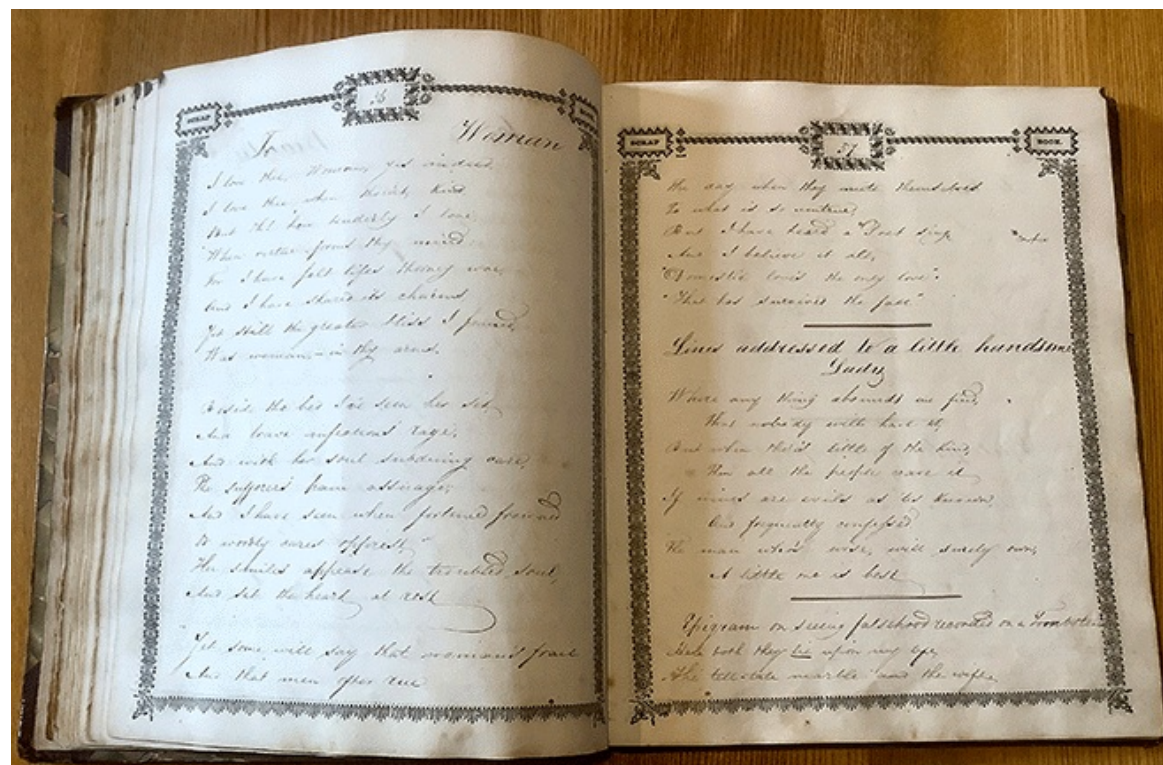 SCRAP
36
BOOK.
To Woman
I love thee, Woman, yes indeed,
I love thee when thou'rt kind
But Oh! how tenderly I love,
When virtue forms thy mind
For I have felt lifes thorney woe,
And I have shared its charms,
Yet still the greatest bliss I found,
Was woman – in thy arms.
Beside the bed I've seen her set,
And brave infectious rage,
And with her soul subduing care,
The sufferers pain assuage;
And I have seen when fortune frowned
Or worldy cares opprest,
Her smiles appease the troubled soul,
And set the heart at rest
Yet some will say that woman's frail
And that men often rue
SCRAP
37
BOOK.
the day when they unite themselves
To what is so untrue,
But I have heard a "Poet sing
And I believe it all,
"Domestic love's the only love".
"That has survived the fall"
Lines addressed to a little handsome
Lady
Where any thing abounds we find,
That nobody will have it,
But when there's little of the kind,
Then all the people crave it
If wives are evils as tis known,
And frequently confessed
The man who's wise, will surely own,
A little one is best
Epigram on seeing falsehood recorded on a Tombstone
Here both they lie upon my life,
The tell-tale marble and the wife.